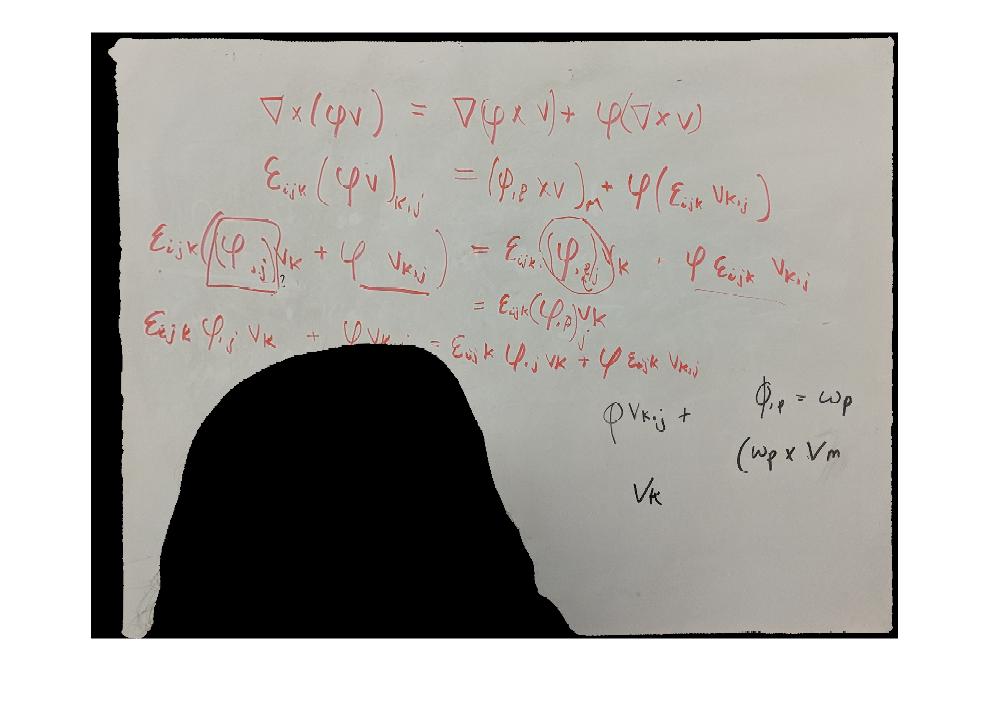 ∇×(φv) = ∇(φ×v) + φ(∇×v)
Eijk(φv)k,j = (φ,p ×v)m + φ(Eijk vk,j)
Eijk((φ,j)vk + φ vk,j) = Eijk(φ,j)vk . φ Eijk vk,j
?
= Eijk(φ,p)j vk
Eijk φ,j vk + φ vk,j = Eijk φ,j vk + φ Eijk vk,j
φ vk,j + φ,p = ωp
(ωp × Vm
Vk